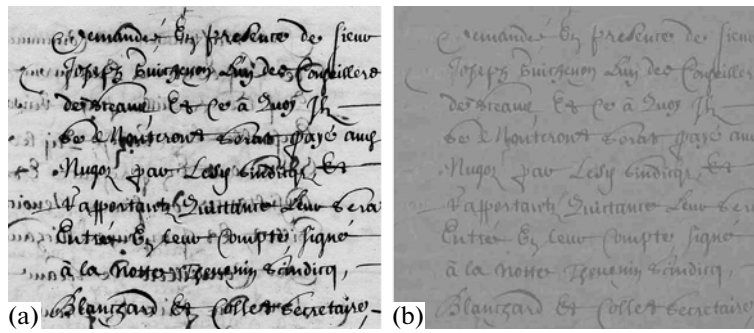 demandé En presence de sieur
Joseph Guichenon des Conseillers
Et Ce à Quoy Ils
se Monteront seras payé aux
par sindicq, Et
Rapportant Quittance Leur sera
Entré En leur Compte signé
à la Notte Thevenin scindicq,
(a) Blanchard Et Collet secretaire
demandé En presence de sieur
Joseph Guichenon des Conseillers
Et Ce à Quoy Ils
se Monteront seras payé aux
par sindicq, Et
Rapportant Quittance Leur sera
Entré En leur Compte signé
à la Notte Thevenin scindicq,
(b) Blanchard Et Collet secretaire